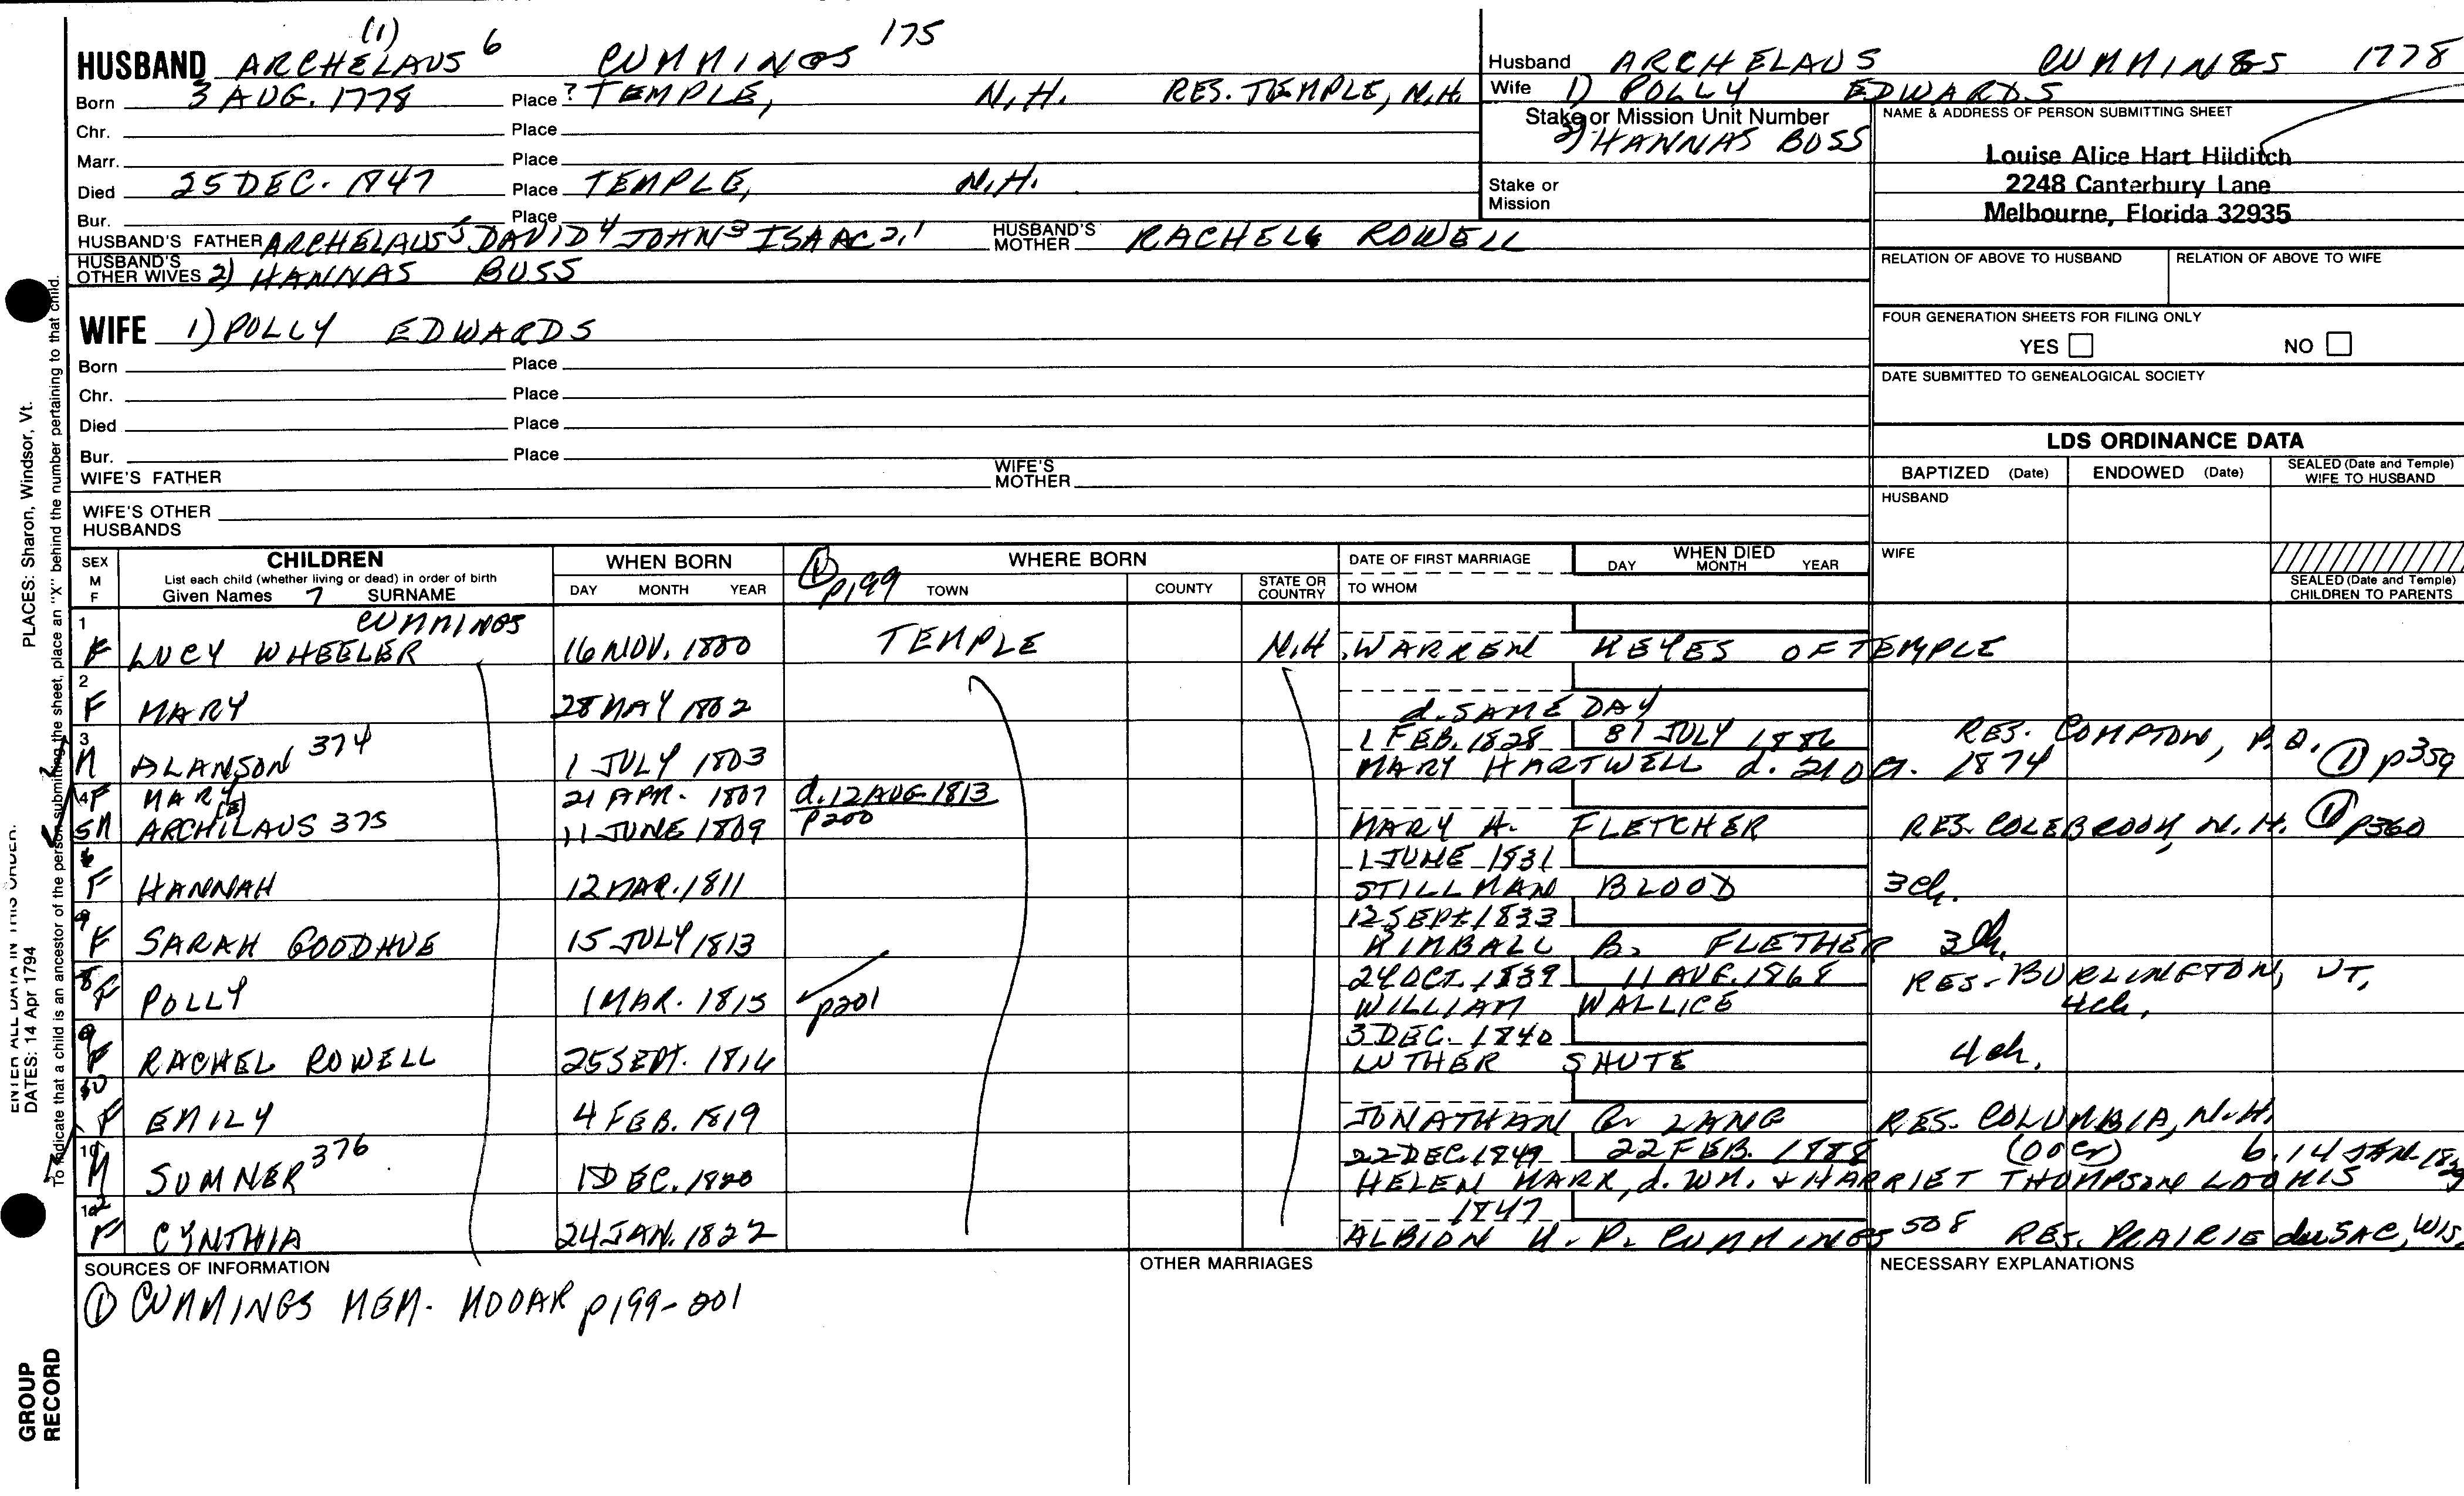 (1)
HUSBAND ARCHELAUS 6 CUMMINGS 175
Born 3 AUG. 1778 Place ? TEMPLE, N.H. RES. TEMPLE, N.H.
Chr. Place
Marr. Place
Died 25 DEC. 1847 Place TEMPLE, N.H.
Bur. Place
HUSBAND'S FATHER ARCHELAUS 5 DAVID 4 JOHN 3 ISAAC 2,1 HUSBAND'S MOTHER RACHEL ROWELL
HUSBAND'S OTHER WIVES 2) HANNAS BUSS
Husband ARCHELAUS CUMMINGS 1778
Wife 1) POLLY EDWARDS
Stake or Mission Unit Number
2) HANNAS BUSS
Stake or Mission
NAME & ADDRESS OF PERSON SUBMITTING SHEET
Louise Alice Hart Hilditch
2248 Canterbury Lane
Melbourne, Florida 32935
RELATION OF ABOVE TO HUSBAND RELATION OF ABOVE TO WIFE
FOUR GENERATION SHEETS FOR FILING ONLY
YES NO
DATE SUBMITTED TO GENEALOGICAL SOCIETY
WIFE 1) POLLY EDWARDS
Born Place
Chr. Place
Died Place
Bur. Place
WIFE'S FATHER WIFE'S MOTHER
WIFE'S OTHER HUSBANDS
LDS ORDINANCE DATA
BAPTIZED (Date) ENDOWED (Date) SEALED (Date and Temple) WIFE TO HUSBAND
HUSBAND
WIFE
SEALED (Date and Temple) CHILDREN TO PARENTS
SEX M F
CHILDREN
List each child (whether living or dead) in order of birth
Given Names 7 SURNAME
WHEN BORN
DAY MONTH YEAR
(1) p199
WHERE BORN
TOWN COUNTY STATE OR COUNTRY
DATE OF FIRST MARRIAGE
TO WHOM
WHEN DIED
DAY MONTH YEAR
1 CUMMINGS
F LUCY WHEELER 16 NOV. 1800 TEMPLE N.H. WARREN KEYES OF TEMPLE
2
F MARY 28 MAY 1802 d. SAME DAY
3 1 FEB. 1828 31 JULY 1886 RES. COMPTON, P.Q. (1) p359
M ALANSON 374 1 JULY 1803 MARY HARTWELL d. 21 OCT. 1874
4 F MARY 21 APR. 1807 d. 12 AUG 1813
5 M ARCHILAUS 375 11 JUNE 1809 p200 MARY H. FLETCHER RES. COLEBROOK, N.H. (1) p360
6 1 JUNE 1831
F HANNAH 12 MAR. 1811 STILLMAN BLOOD 3 ch.
12 SEPT 1833
F SARAH GOODHUE 15 JULY 1813 KIMBALL B. FLETHER 3 ch.
8 24 OCT. 1839 11 AUG. 1868 RES. BURLINGTON, VT.
F POLLY 1 MAR. 1815 p201 WILLIAM WALLICE 4 ch.
9 3 DEC. 1840
F RACHEL ROWELL 25 SEPT. 1816 LUTHER SHUTE 4 ch.
10
F EMILY 4 FEB. 1819 JONATHAN LANG RES. COLUMBIA, N.H.
22 DEC. 1849 22 FEB. 1888 (over) b. 14 JAN.
M SUMNER 376 1 DEC. 1820 HELEN MARR, d. WM. + HARRIET THOMPSON LOOMIS
1847
F CYNTHIA 24 JAN. 1822 ALBION K. P. CUMMINGS 508 RES. PRAIRIE du SAC, WIS.
SOURCES OF INFORMATION
(1) CUMMINGS MEM. MOOAR p199-201
OTHER MARRIAGES
NECESSARY EXPLANATIONS
PLACES: Sharon, Windsor, Vt.
ENTER ALL DATA IN THIS ORDER:
DATES: 14 Apr 1794
To indicate that a child is an ancestor of the person submitting the sheet, place an "X" behind the number pertaining to that child.
GROUP
RECORD